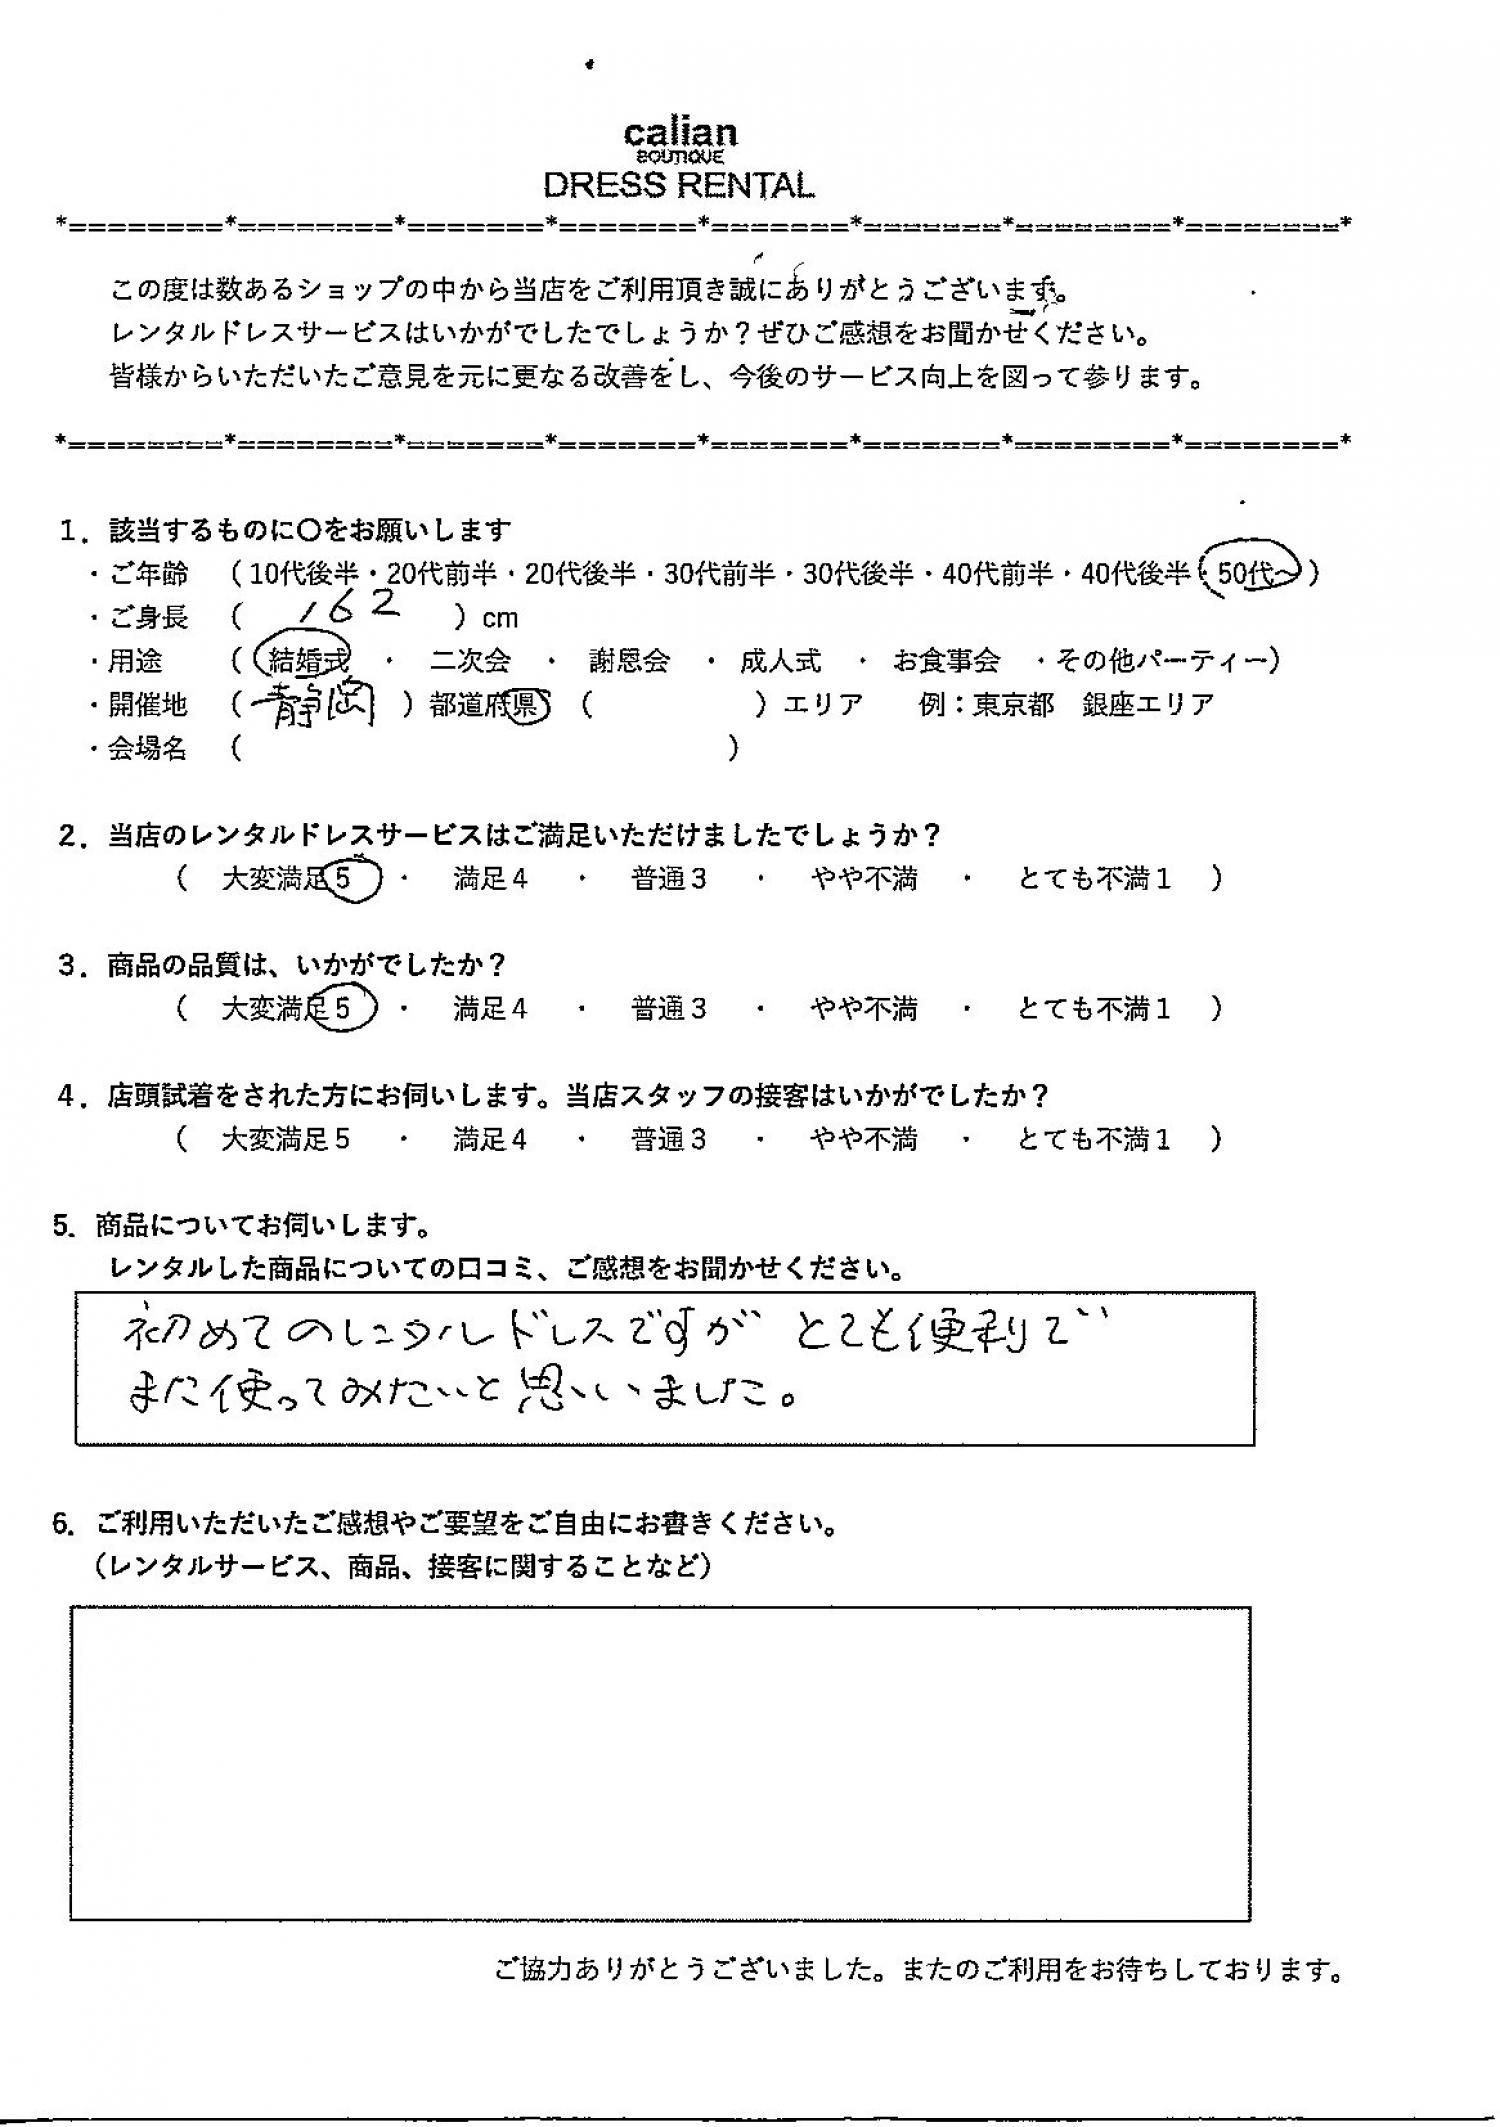 calian
BOUTIQUE
DRESS RENTAL
*========*========*=======*=======*=======*=======*========*========*
この度は数あるショップの中から当店をご利用頂き誠にありがとうございます。
レンタルドレスサービスはいかがでしたでしょうか？ぜひご感想をお聞かせください。
皆様からいただいたご意見を元に更なる改善をし、今後のサービス向上を図って参ります。
*========*========*=======*=======*=======*=======*========*========*
1．該当するものに〇をお願いします
・ご年齢 （10代後半・20代前半・20代後半・30代前半・30代後半・40代前半・40代後半・50代～）
・ご身長 （ 162 ）cm
・用途 （ 結婚式 ・ 二次会 ・ 謝恩会 ・ 成人式 ・ お食事会 ・その他パーティー）
・開催地 （ 静岡 ）都道府県 （ ）エリア 例：東京都 銀座エリア
・会場名 （ ）
2．当店のレンタルドレスサービスはご満足いただけましたでしょうか？
（ 大変満足5 ・ 満足4 ・ 普通3 ・ やや不満 ・ とても不満1 ）
3．商品の品質は、いかがでしたか？
（ 大変満足5 ・ 満足4 ・ 普通3 ・ やや不満 ・ とても不満1 ）
4．店頭試着をされた方にお伺いします。当店スタッフの接客はいかがでしたか？
（ 大変満足5 ・ 満足4 ・ 普通3 ・ やや不満 ・ とても不満1 ）
5．商品についてお伺いします。
レンタルした商品についての口コミ、ご感想をお聞かせください。
初めてのレンタルドレスですが とても便利で
また使ってみたいと思いいました。
6．ご利用いただいたご感想やご要望をご自由にお書きください。
（レンタルサービス、商品、接客に関することなど）
ご協力ありがとうございました。またのご利用をお待ちしております。